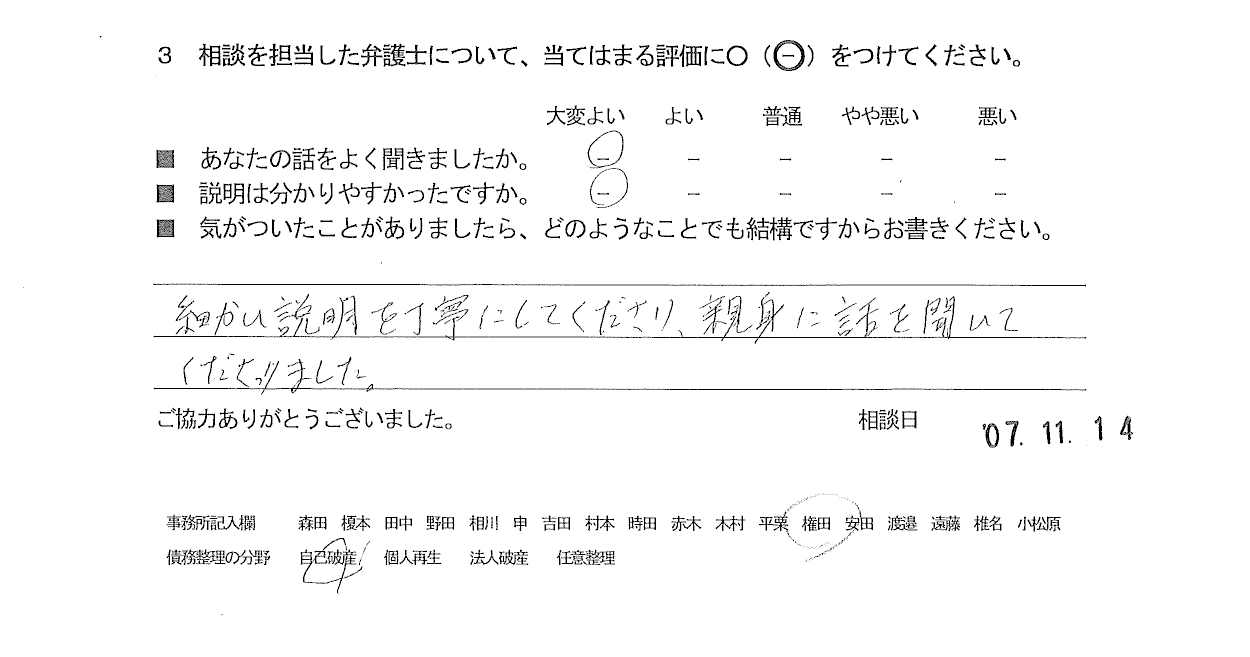 3 相談を担当した弁護士について、当てはまる評価に○（㊀）をつけてください。
大変よい よい 普通 やや悪い 悪い
■ あなたの話をよく聞きましたか。 － － － － －
■ 説明は分かりやすかったですか。 － － － － －
■ 気がついたことがありましたら、どのようなことでも結構ですからお書きください。
細かい説明を丁寧にしてくださり、親身に話を聞いて
くださりました。
ご協力ありがとうございました。 相談日 '07.11.14
事務所記入欄 森田 榎本 田中 野田 相川 申 吉田 村本 時田 赤木 木村 平栗 権田 安田 渡邉 遠藤 椎名 小松原
債務整理の分野 自己破産 個人再生 法人破産 任意整理